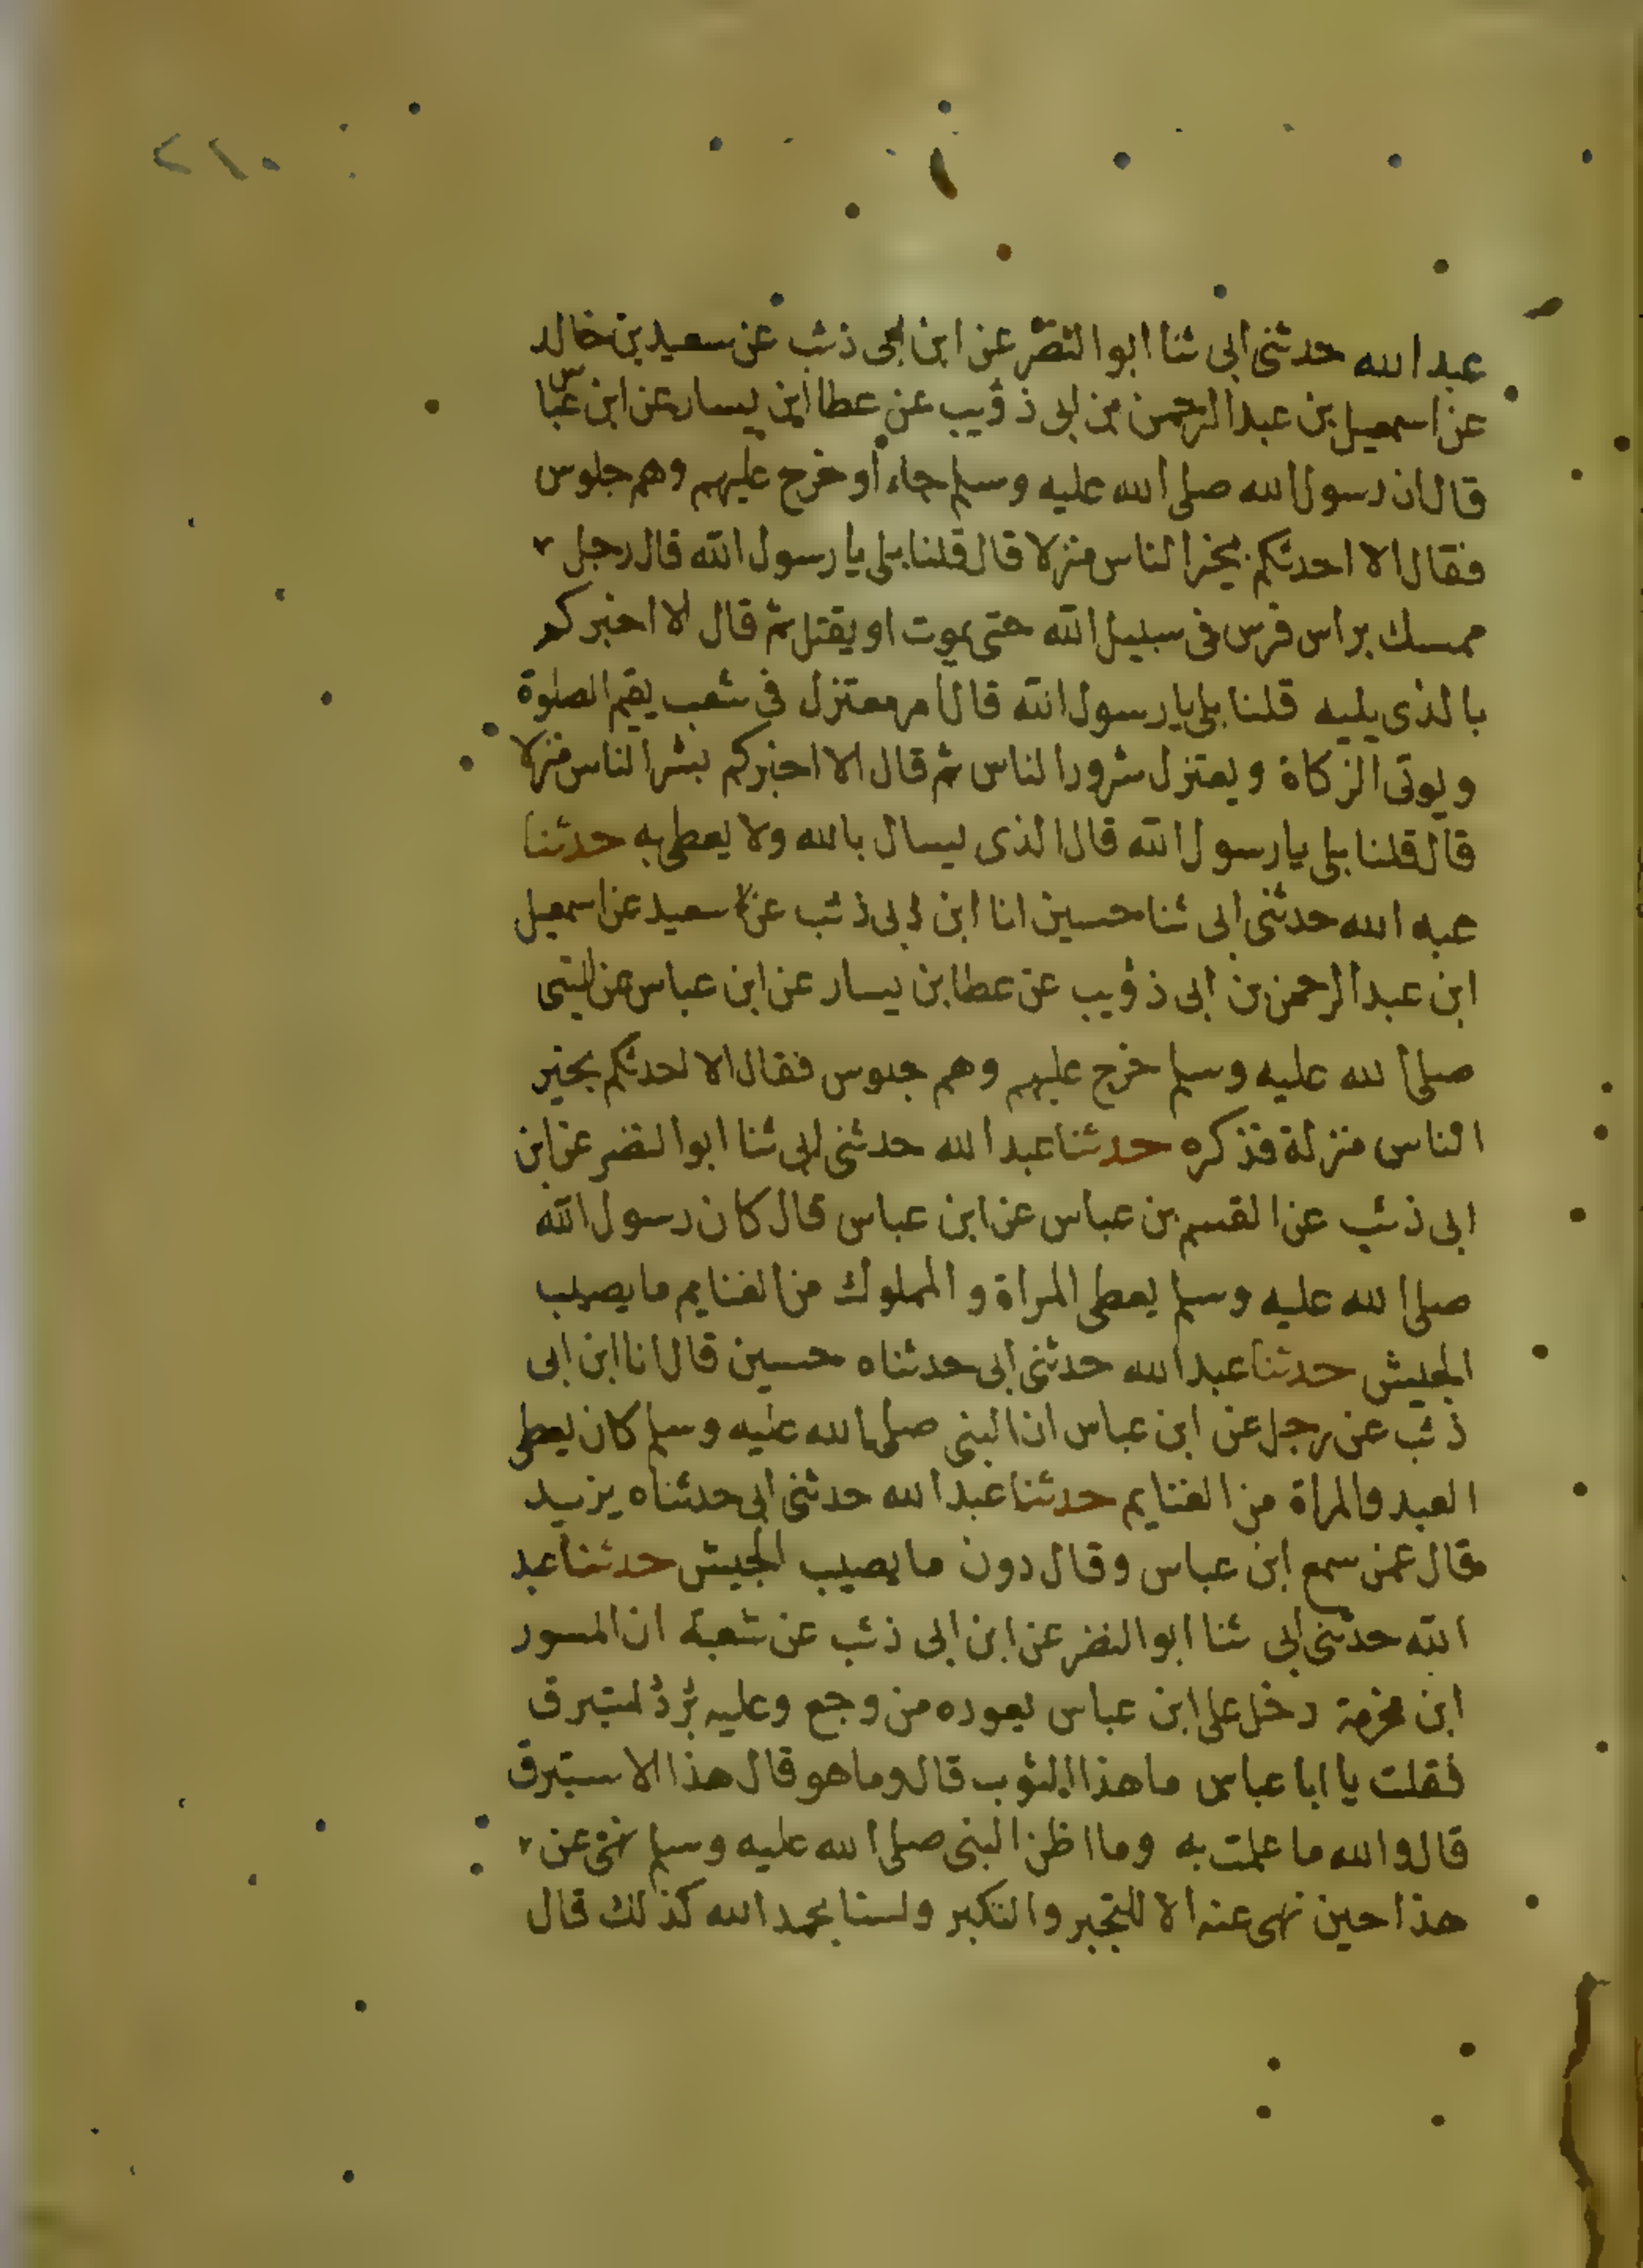 ٢١٠
عبد الله حدثنى ابى ثنا ابو النضر عن ابن ابى ذئب عن سعيد بن خالد
عن اسمعيل بن عبد الرحمن بن ابى ذؤيب عن عطا ابن يسار عن ابن عباس
قال ان رسول الله صلى الله عليه وسلم جاء او خرج عليهم وهم جلوس
فقال الا احدثكم بخير الناس منزلا قال قلنا بلى يا رسول الله قال رجل
ممسك براس فرس فى سبيل الله حتى يموت او يقتل ثم قال الا اخبركم
بالذى يليه قلنا بلى يا رسول الله قال امر معتزل فى شعب يقيم الصلوة
ويوتى الزكاة ويعتزل شرور الناس ثم قال الا اخبركم بشر الناس منزلا
قال قلنا بلى يا رسول الله قال الذى يسال بالله ولا يعطى به حدثنا
عبد الله حدثنى ابى ثنا حسين انا ابن ابى ذئب عن سعيد عن اسمعيل
ابن عبد الرحمن بن ابى ذؤيب عن عطا بن يسار عن ابن عباس عن النبى
صلى الله عليه وسلم خرج عليهم وهم جلوس فقال الا احدثكم بخير
الناس منزلة فذكره حدثنا عبد الله حدثنى ابى ثنا ابو النضر عن ابن
ابى ذئب عن القسم بن عباس عن ابن عباس قال كان رسول الله
صلى الله عليه وسلم يعطى المراة والمملوك من الغنايم ما يصيب
الجيش حدثنا عبد الله حدثنى ابى حدثناه حسين قال انا ابن ابى
ذئب عن رجل عن ابن عباس ان النبى صلى الله عليه وسلم كان يعطى
العبد والمراة من الغنايم حدثنا عبد الله حدثنى ابى حدثناه يزيد
قال عمن سمع ابن عباس وقال دون ما يصيب الجيش حدثنا عبد
الله حدثنى ابى ثنا ابو النضر عن ابن ابى ذئب عن شعبة ان المسور
ابن مخرمة دخل على ابن عباس يعوده من وجع وعليه بُردُ استبرق
فقلت يا ابا عباس ما هذا الثوب قال وما هو قال هذا الاستبرق
قال والله ما علمت به وما اظن النبى صلى الله عليه وسلم نهى عن
هذا حين نهى عنه الا للتجبر والتكبر ولسنا بحمد الله كذلك قال